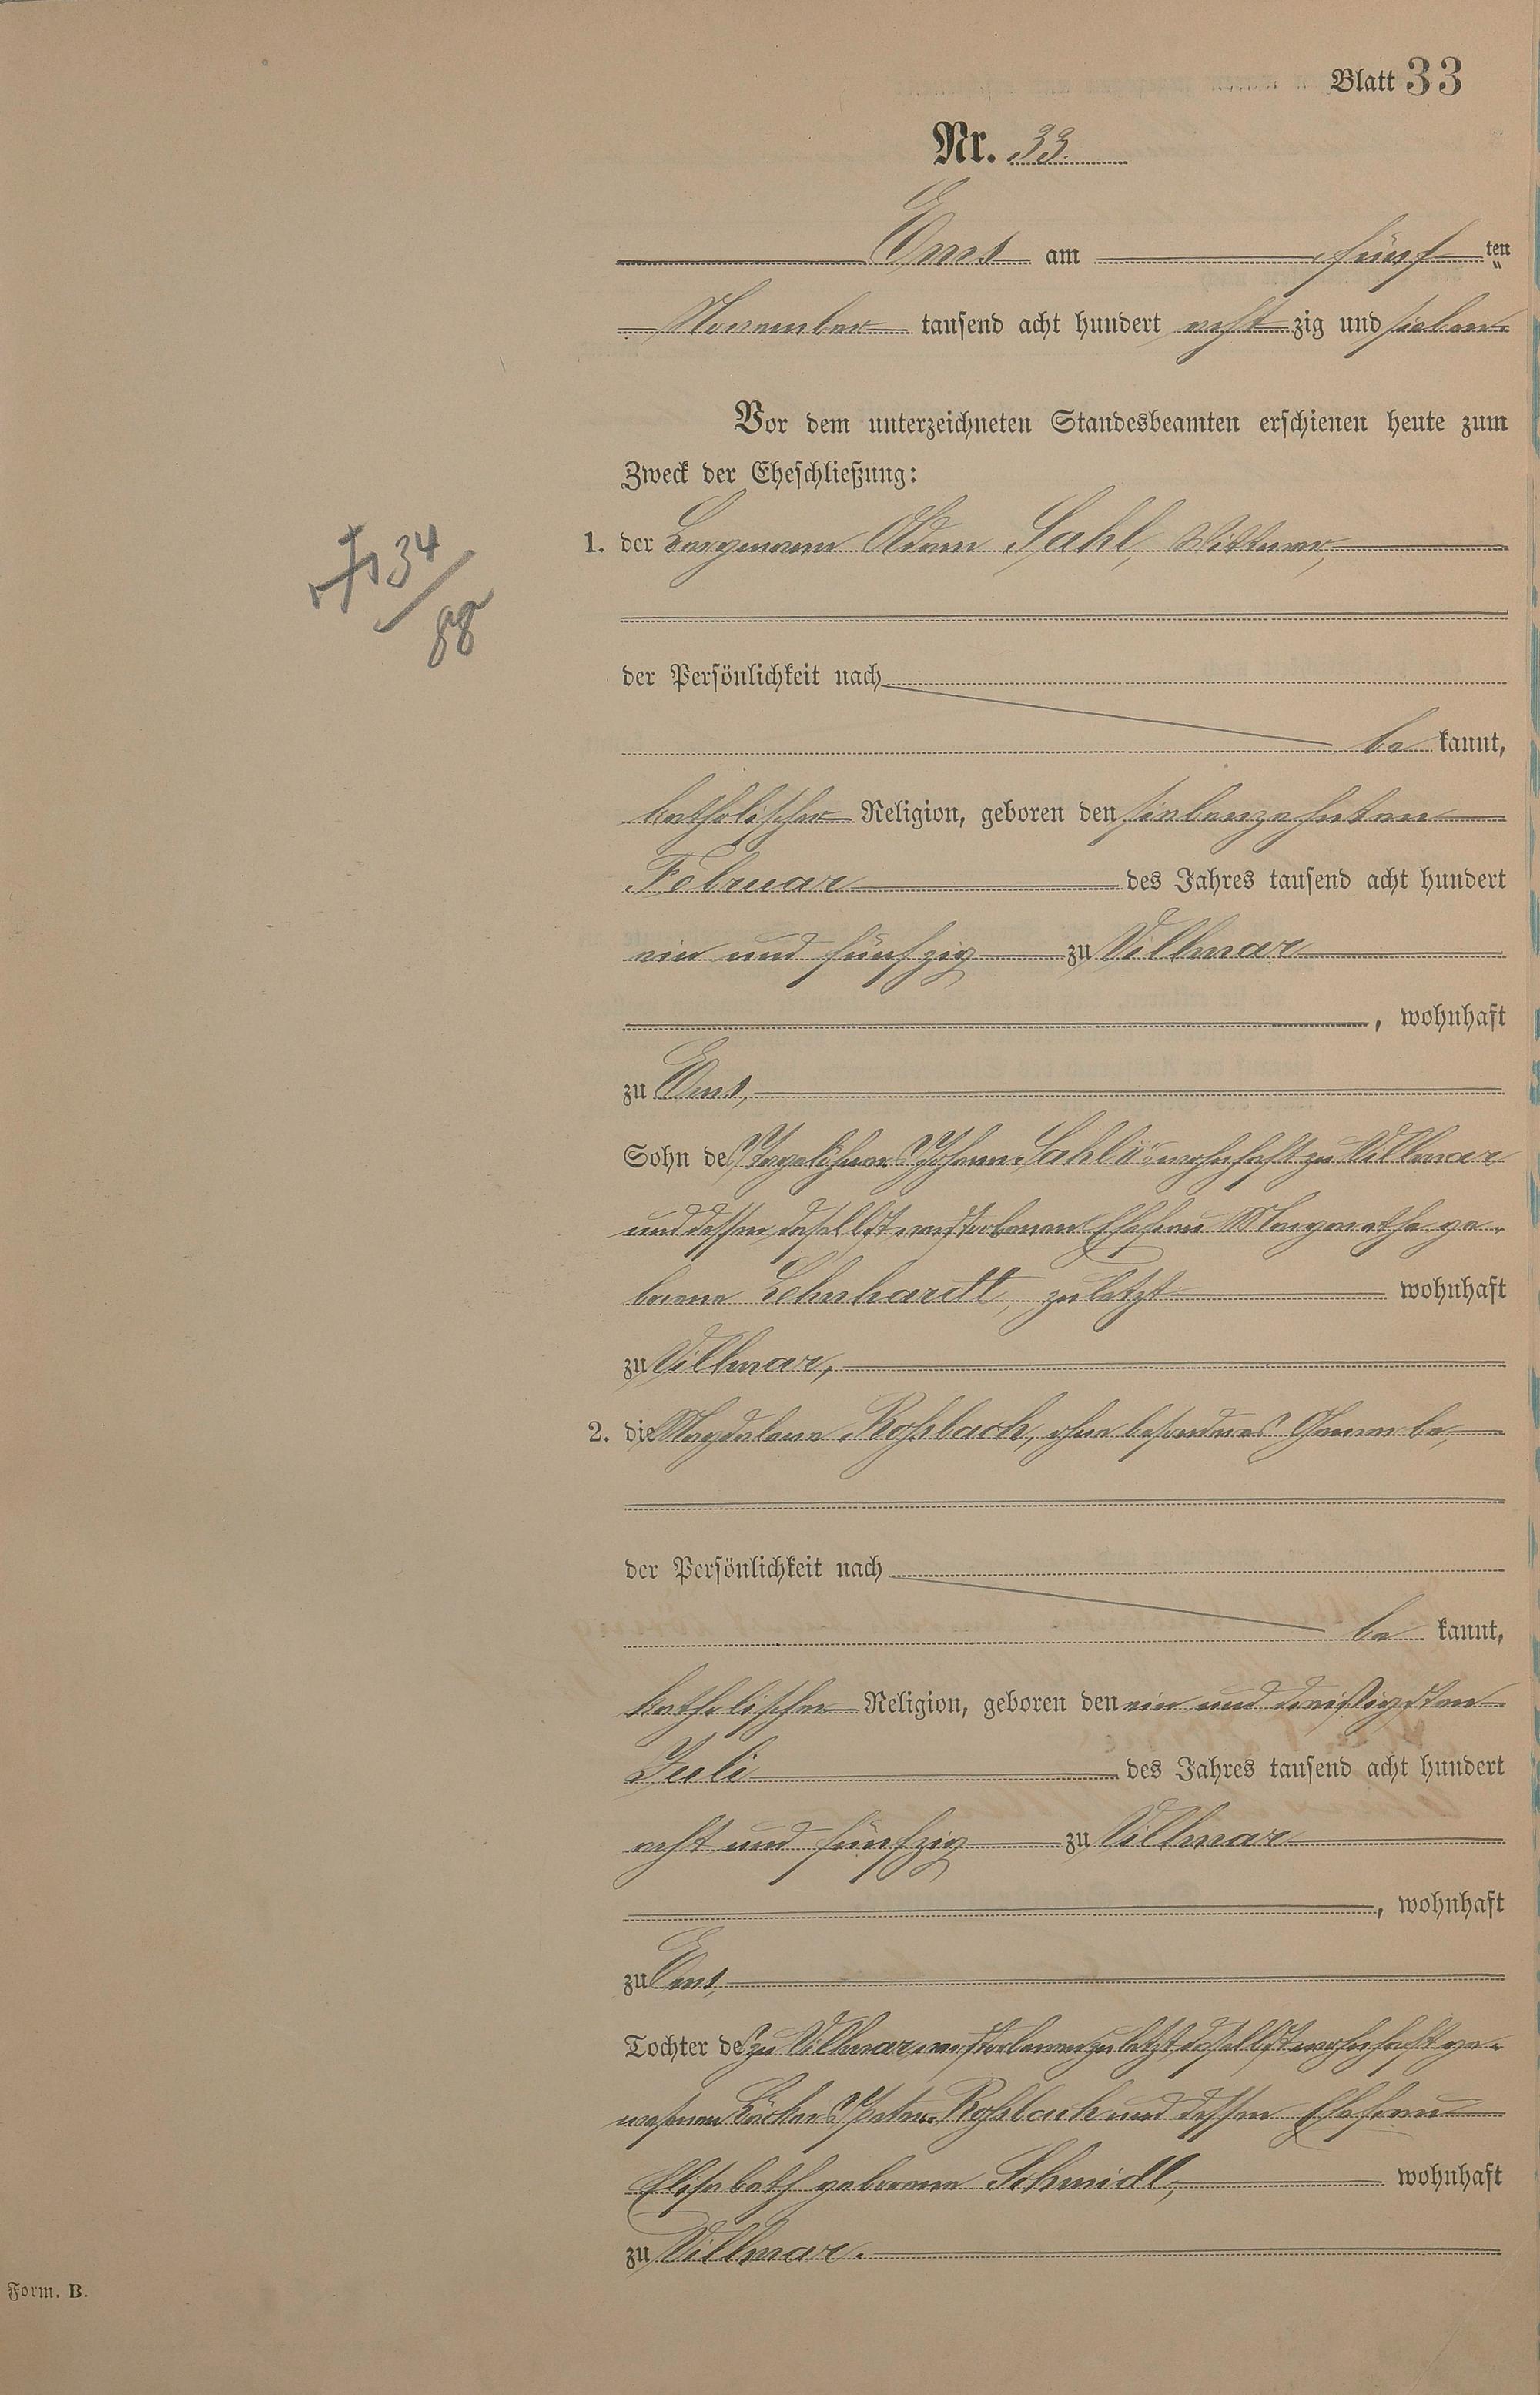 Blatt 33
Nr. 33.
Ems am fünf ten
November tausend acht hundert acht zig und sieben
Vor dem unterzeichneten Standesbeamten erschienen heute zum
Zweck der Eheschließung:
1. der Bergmann Adam Sahl, Wittwer,
34
88
der Persönlichkeit nach
be kannt,
katholischer Religion, geboren den siebenzehnten
Februar des Jahres tausend acht hundert
ein und fünfzig zu Villmar
, wohnhaft
zu Ems,
Sohn des Tagelöhners Johann Sahl II wohnhaft zu Villmar
und dessen daselbst verstorbenen Ehefrau Margarethe ge-
borene Lehnhardt, zuletzt wohnhaft
zu Villmar,
2. die Magdalena Roßbach, ohne besonderes Gewerbe,
der Persönlichkeit nach
be kannt,
katholischer Religion, geboren den ein und dreißigsten
Juli des Jahres tausend acht hundert
acht und fünfzig zu Villmar
, wohnhaft
zu Ems,
Tochter des zu Villmar verstorbenen zuletzt daselbst wohnhaft ge-
wesenen Bäckers Peter Roßbach und dessen Ehefrau
Elisabeth geborene Schmidt, wohnhaft
zu Villmar.
Form. B.